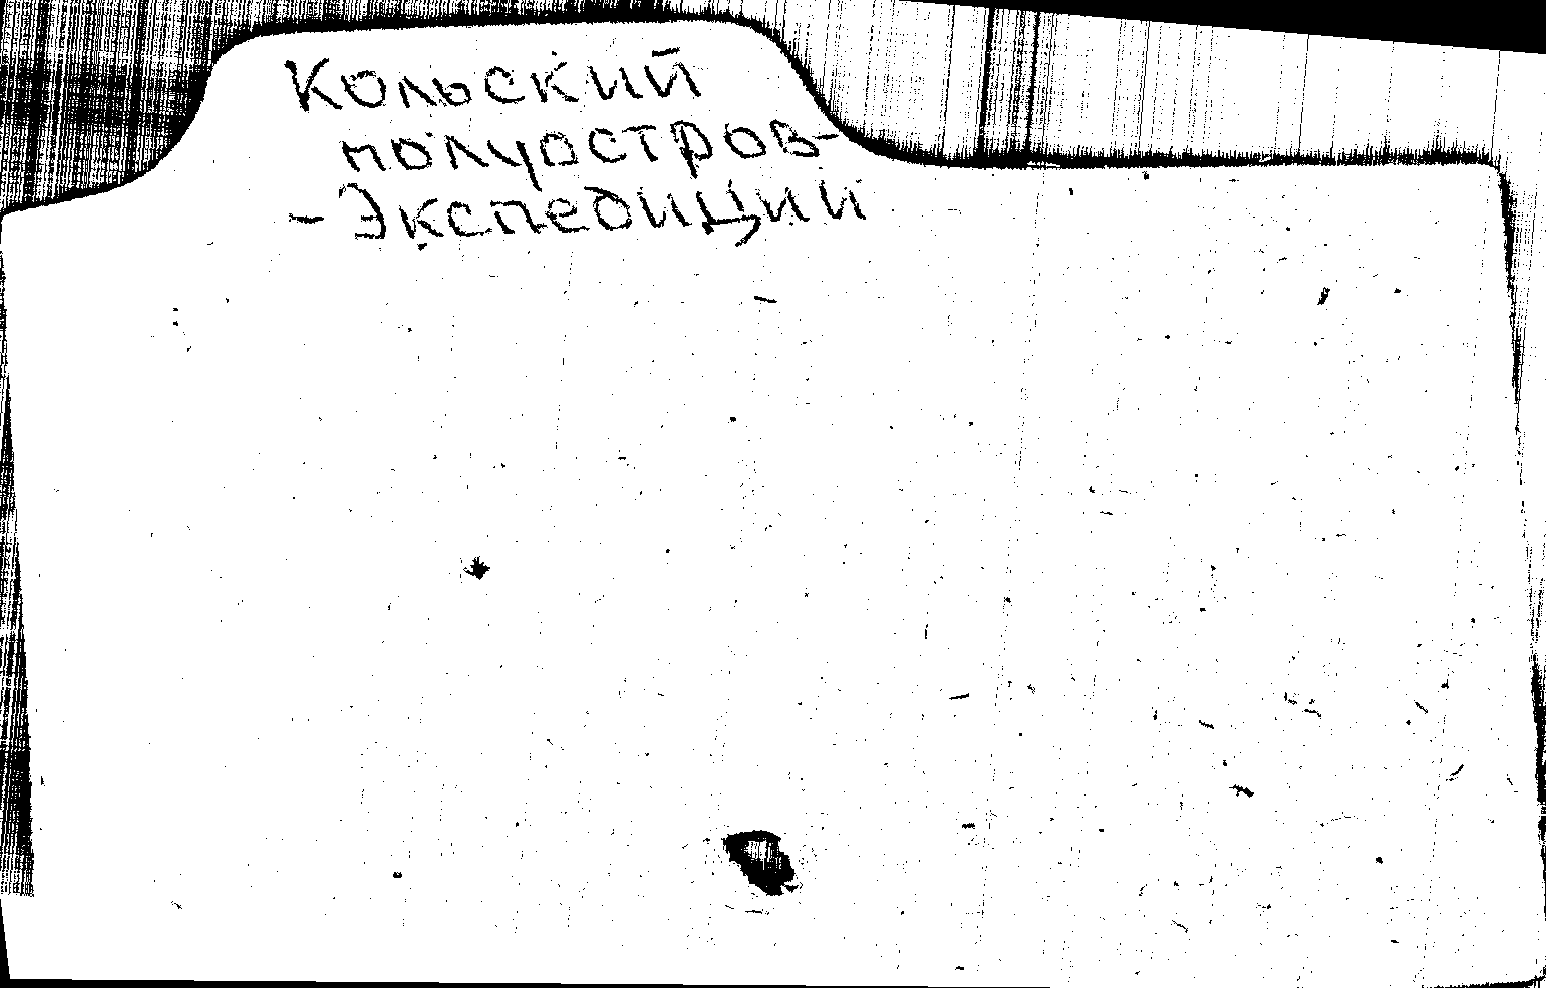 Кольский
полуостров-
- Экспедиции